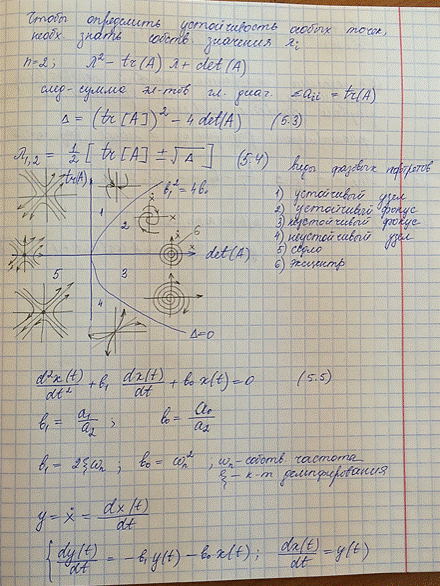 Чтобы определить устойчивость особых точек,
необх знать собств. значения λi
n=2; λ² - tr(A) λ + det(A)
след-сумма эл-тов гл. диаг. Σaii = tr(A)
Δ = (tr[A])² - 4 det(A) (5.3)
λ1,2 = 1/2 [ tr[A] ± √Δ ] (5.4)
виды фазовых портретов
1) устойчивый узел
2) устойчивый фокус
3) неустойчивый фокус
4) неустойчивый узел
5) седло
6)
tr(A)
b₁² = 4b₀
1
2
6
det(A)
5
3
4
Δ=0
d²x(t)/dt² + b₁ dx(t)/dt + b₀ x(t) = 0 (5.5)
b₁ = a₁/a₂ ; b₀ = a₀/a₂
b₁ = 2ξωn ; b₀ = ωn² , ωn - собств частота
ξ - к-т демпфирования
y = ẋ = dx(t)/dt
{ dy(t)/dt = -b₁ y(t) - b₀ x(t) ; dx(t)/dt = y(t)